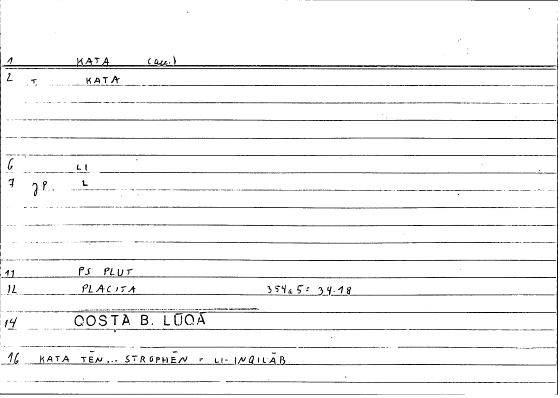 1 KATA (acc.)
2 T. KATA
6 LI
7 JP. L
11 PS PLUT
12 PLACITA 354a5 = 34.18
14 QOSṬĀ B. LŪQĀ
16 KATA TĒN... STROPHĒN = LI-INQILĀB